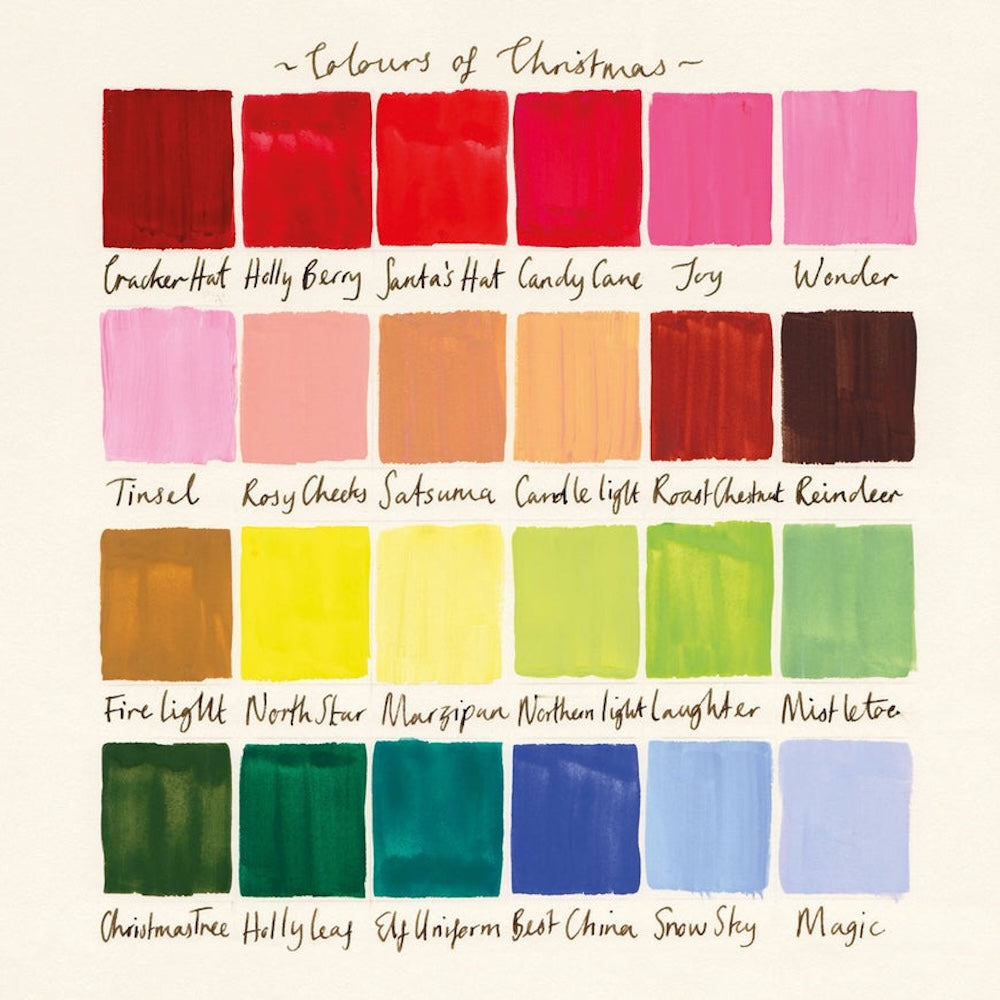 ~Colours of Christmas~
Cracker Hat Holly Berry Santa's Hat Candy Cane Joy Wonder
Tinsel Rosy Cheeks Satsuma Candle light Roast Chestnut Reindeer
Fire light North Star Marzipan Northern light Laughter Mistletoe
Christmas Tree Holly Leaf Elf Uniform Best China Snow Sky Magic